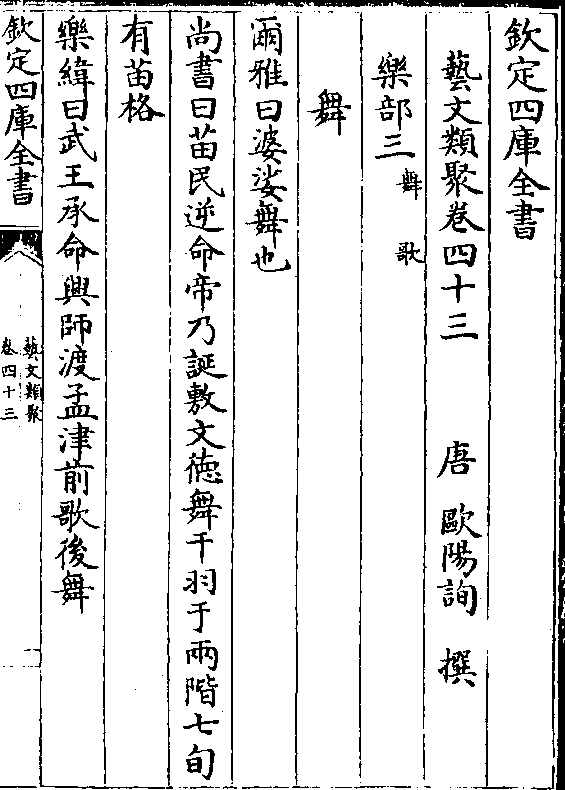 欽定四庫全書
藝文類聚卷四十三　唐　歐陽詢　撰
樂部三　舞　歌
舞
爾雅曰婆娑舞也
尚書曰苗民逆命帝乃誕敷文德舞干羽于兩階七旬
有苗格
樂緯曰武王承命興師渡孟津前歌後舞
欽定四庫全書
藝文類聚
卷四十三
一